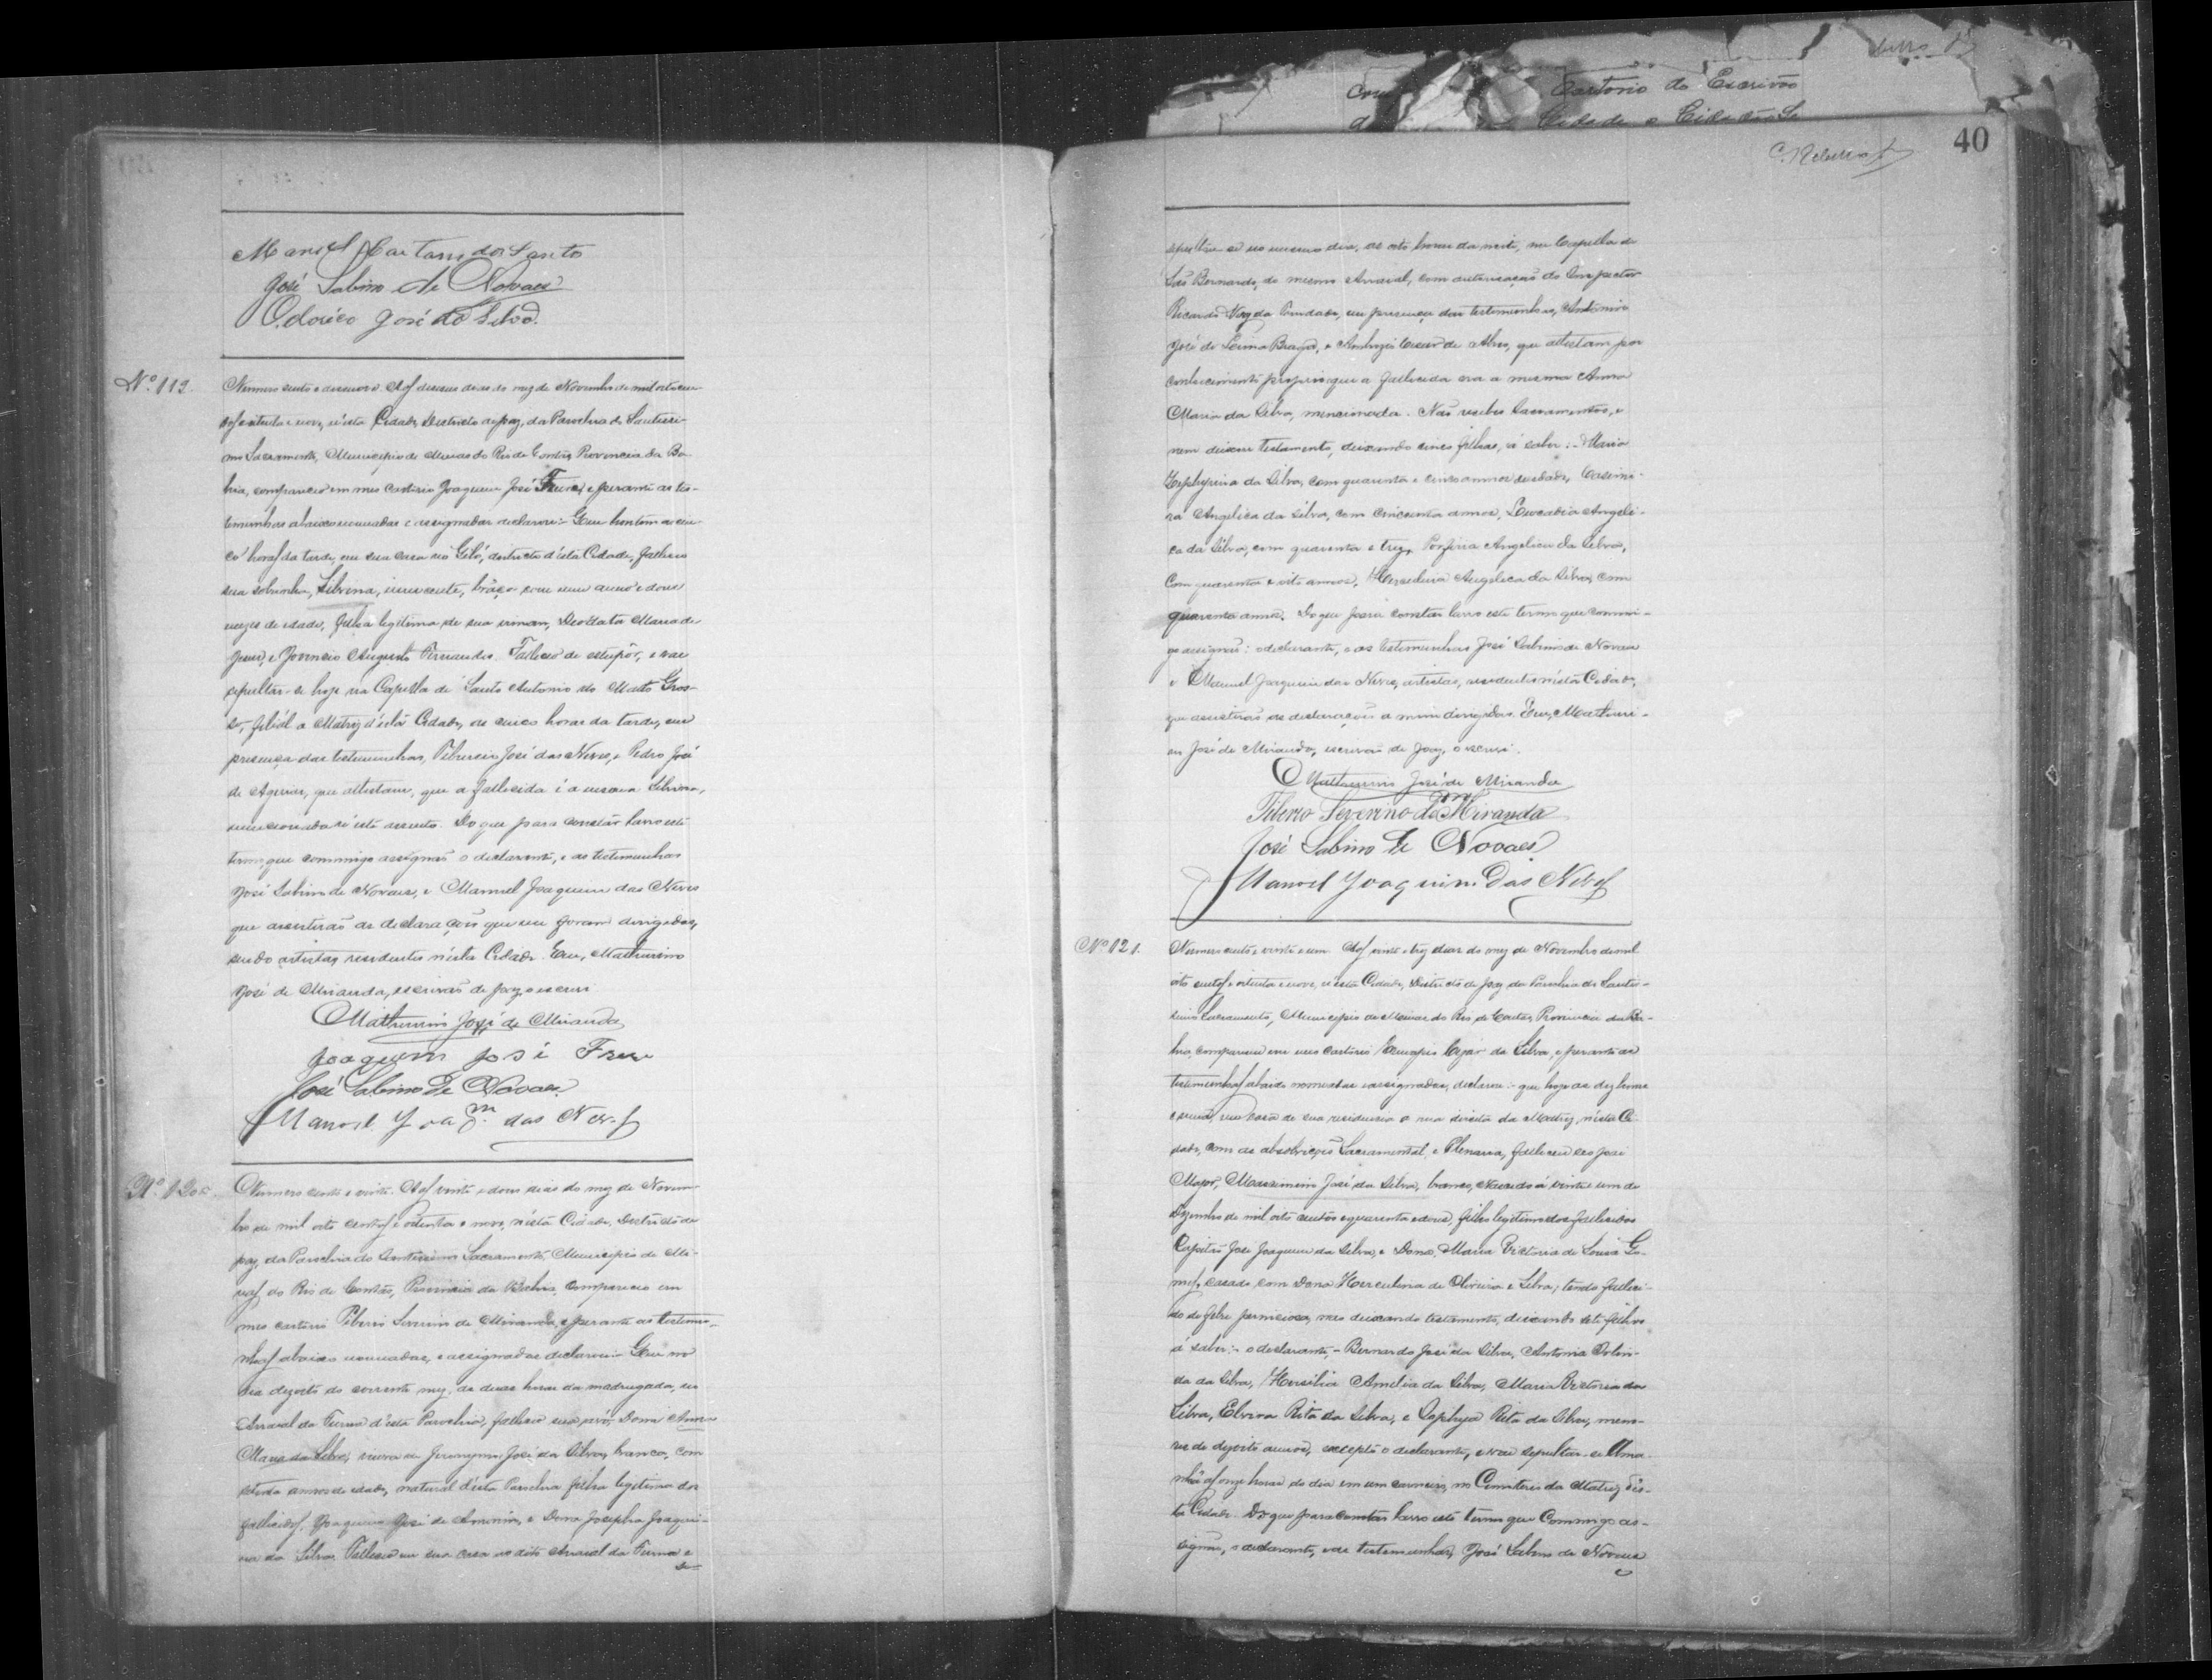 Manoel Caetano dos Santos
José Sabino de Novaes
Odorico José da Silva.
Nº 119.
Numero cento e dezenove. Aos dezenove dias do mez de Novembro de mil oito cen-
tos e oitenta e nove, n'esta Cidade, Districto de paz, da Parochia do Santissi-
mo Sacramento, Municipio de Minas do Rio de Contas, Provincia da Ba-
hia, compareceo em meu cartorio Joaquim José Freire, e perante as tes-
temunhas abaixo nomeadas e assignadas declarou:- Que hontem as cin-
co horas da tarde, em sua casa no Giló, districto d'esta Cidade, falleceo
sua sobrinha, Silvina, innocente, com um anno e dous
mezes de idade, filha legitima de sua irman, Deodata Maria de
Jesus, e Jovencio Augusto Fernandes. Falleceo de estupôr, e vae
sepultar-se hoje na Capella de Santo Antonio do Matto Gros-
so, filial a Matriz d'esta Cidade, as cinco horas da tarde, em
presença das testemunhas, Tiburcio José das Neves, e Pedro José
de Aguiar, que attestam, que a fallecida é a mesma Silvina,
mencionada n'este assento. Do que para constar lavro este
termo, que commigo assignão o declarante, e as testemunhas
José Sabino de Novaes, e Manuel Joaquim das Neves
que assistirão as declarações que me foram dirigidas,
sendo artistas, residentes n'esta Cidade. Eu, Mathurino
José de Miranda, escrivão de paz, o escrevi
Mathurino José de Miranda
Joaquim José Freire
José Sabino de Novaes.
Manoel Joaqm. das Neves
Nº 120.
Numero cento e vinte. Aos vinte e dous dias do mez de Novem-
bro de mil oito centos e oitenta e nove, n'esta Cidade, Districto de
paz, da Parochia do Santissimo Sacramento, Municipio de Mi-
nas do Rio de Contas, Provincia da Bahia, compareceo em
meu cartorio Tiberio Severino de Miranda, e perante as testemu-
nhas abaixo nomeadas, e assignadas declarou:- Que no
dia dezoito do corrente mez, as duas horas da madrugada, no
Arraial da Furna d'esta Parochia, falleceo sua avó, Dona Anna
Maria da Silva, viuva de Jeronymo José da Silva, branca, com
annos de idade, natural d'esta Parochia filha legitima dos
fallecidos, Joaquim José de Amorim, e Dona Josepha Joaqui-
na da Silva. Falleceo em sua casa no dito Arraial da Furna e
se-
40
sepultou-se no mesmo dia, as oito horas da noite, na Capella de
São Bernardo, do mesmo Arraial, com autorisação do Inspector
Ricardo Vaz da Trindade, em presença das testemunhas, Antonio
José de Lima Braga, e Ambrozio Cezar de Alves, que attestam por
conhecimento proprio que a fallecida era a mesma Anna
Maria da Silva, mencionada. Não recebeo Sacramentos, e
nem deixou testamento, deixando cinco filhas, á saber:- Maria
Zephyrina da Silva, com quarenta e cinco annos de idade, Casimi-
ra Angelica da Silva, com cincoenta annos, Leocadia Angeli-
ca da Silva, com quarenta e trez, Porfiria Angelica da Silva,
com quarenta e oito annos, Herculina Angelica da Silva, com
quarenta annos. Do que para constar lavro este termo que commi-
go assignão: o declarante, e as testemunhas José Sabino de Novaes
e Manuel Joaquim das Neves, artistas, residentes n'esta Cidade,
que assistirão as declarações a mim dirigidas. Eu, Mathuri-
no José de Miranda, escrivão de paz, o escrevi.
Mathurino José de Miranda
Tiberio Severino de Miranda
José Sabino de Novaes
Manoel Joaquim das Neves
Nº 121.
Numero cento, vinte e um. Aos vinte e trez dias do mez de Novembro de mil
oito centos e oitenta e nove, n'esta Cidade, Districto de paz da Parochia do Santis-
simo Sacramento, Municipio de Minas do Rio de Contas, Provincia da Ba-
hia, compareceu em meu cartorio Cezar da Silva, e perante as
testemunhas abaixo nomeadas e assignadas, declarou:- que hoje as dez horas
e meia, em casa de sua residencia a rua direita da Matriz, n'esta Ci-
dade, com as absolvições Sacramental, e Plenaria, falleceu seo pai
Major, Maximino José da Silva, branco, nascido á vinte e um de
Dezembro de mil oito centos e quarenta e dous, filho legitimo dos fallecidos
Capitão José Joaquim da Silva, e Dona Maria Victoria de Souza Go-
mes, casado com Dona Herculina de Oliveira e Silva; tendo falleci-
do de febre perniciosa, não deixando testamento, deixando sete filhos
á saber:- o declarante,- Bernardo José da Silva, Antonia Dolin-
da da Silva, Hersilia Amelia da Silva, Maria Victoria da
Silva, Elvira Rita da Silva, e Rita da Silva, meno-
res de dezoito annos, excepto o declarante, e vae sepultar-se Ama-
nhã as onze horas do dia em um carneiro, no Cimiterio da Matriz d'es-
ta Cidade. Do que para constar lavro este termo que Commigo as-
signão, o declarante, e as testemunhas, José Sabino de Novaes